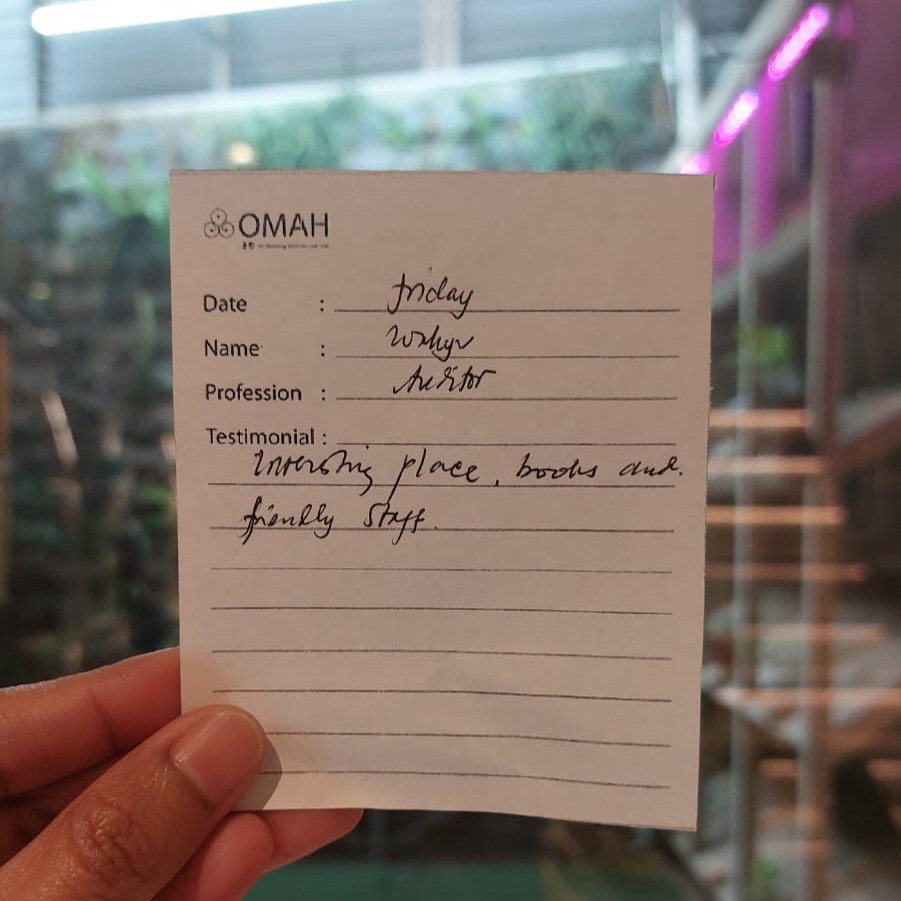 OMAH
Date : friday
Name : Wahyu
Profession : Auditor
Testimonial :
Interesting place, books and.
friendly staff.